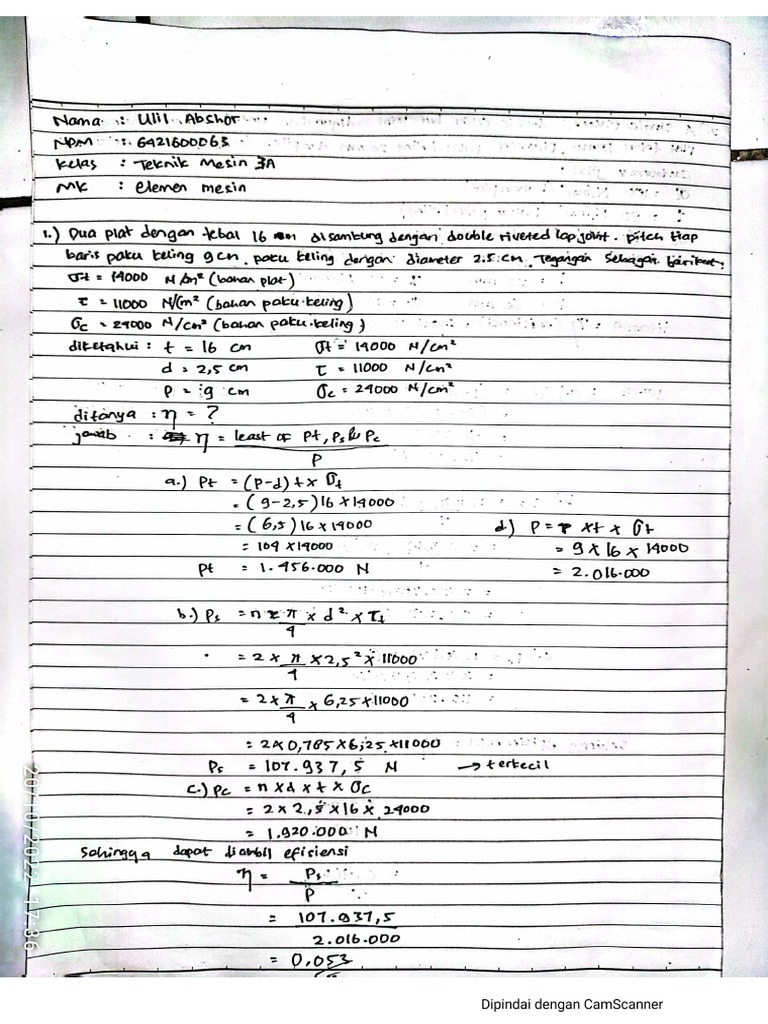 Nama : Ulil Abshor
NPM : 6421600063
Kelas : Teknik Mesin 3A
MK : elemen mesin
1.) Dua plat dengan tebal 16 disambung dengan double riveted lap joint. pitch tiap
baris paku keling 9 cm. paku keling dengan diameter 2.5 cm. Tegangan sebagai berikut.
σt = 14000 N/cm² (bahan plat)
τ = 11000 N/cm² (bahan paku keling)
σc = 24000 N/cm² (bahan paku keling)
diketahui : t = 16 cm σt = 14000 N/cm²
d = 2,5 cm τ = 11000 N/cm²
P = 9 cm σc = 24000 N/cm²
ditanya : η = ?
jawab : η = least of Pt, Ps & Pc
P
a.) Pt = (P-d) t x σt
= (9-2,5) 16 x 14000
= (6,5) 16 x 14000
= 104 x 14000
Pt = 1.456.000 N
d) P = P x t x σt
= 9 x 16 x 14000
= 2.016.000
b.) Ps = n x π x d² x τt
4
= 2 x π x 2,5² x 11000
4
= 2 x π x 6,25 x 11000
4
= 2 x 0,785 x 6,25 x 11000
Ps = 107.937,5 N → terkecil
c.) Pc = n x d x t x σc
= 2 x 2,5 x 16 x 24000
= 1.920.000 N
Sehingga dapat diambil efisiensi
η = Ps
P
= 107.937,5
2.016.000
= 0,053
20/10/2022 17:36
Dipindai dengan CamScanner